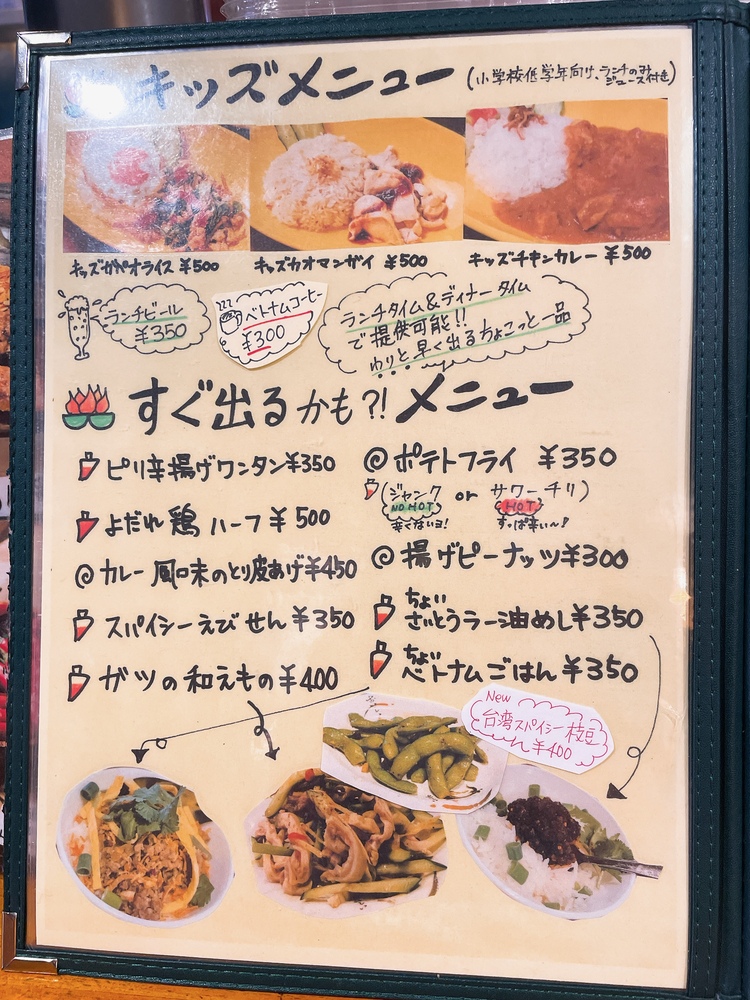 キッズメニュー
(小学校低学年向け、ランチのみ
ジュース付き)
キッズガパオライス ¥500
キッズカオマンガイ ¥500
キッズチキンカレー ¥500
ランチビール
¥350
ベトナムコーヒー
¥300
ランチタイム&ディナータイム
で提供可能!!
ゆりと早く出るちょこっと一品
すぐ出るかも?!メニュー
ピリ辛揚げワンタン¥350
よだれ鶏 ハーフ¥500
カレー風味のとり皮あげ¥450
スパイシーえびせん¥350
ガツの和えもの¥400
ポテトフライ ¥350
(ジャンク or サワーチリ)
NO HOT
HOT
辛くないョ!
すっぱ辛い〜!
揚げピーナッツ¥300
ちょい
さいとうラー油めし¥350
ちょい
ベトナムごはん¥350
New
台湾スパイシー枝豆
¥400